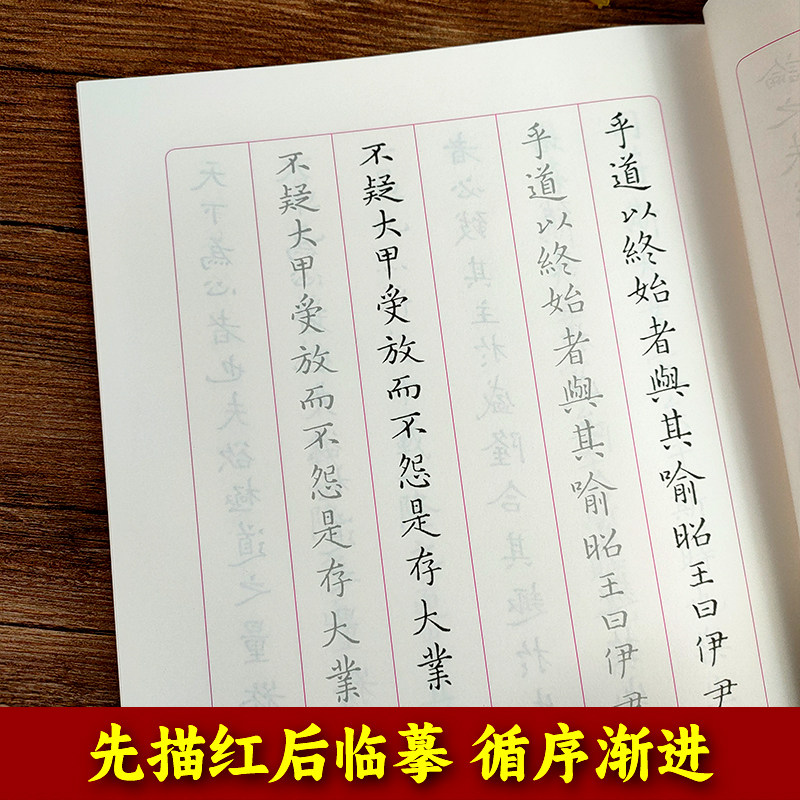 乎道以終始者與其喻昭王曰伊尹
乎道以終始者與其喻昭王曰伊尹
不疑大甲受放而不怨是存大業
不疑大甲受放而不怨是存大業
先描红后临摹 循序渐进